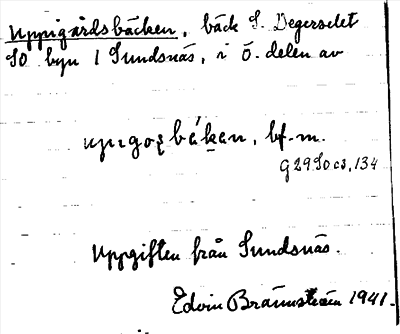 Uppigårdsbäcken, bäck S. Degerselet
SO byn 1 Sundsnäs, i ö. delen av
bf. m.
G 29 So cs, 134
Uppgiften från Sundsnäs.
Edvin Brännström 1941.